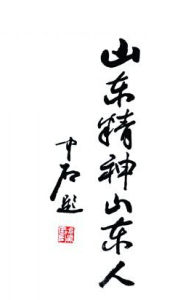 山东精神山东人
中石题